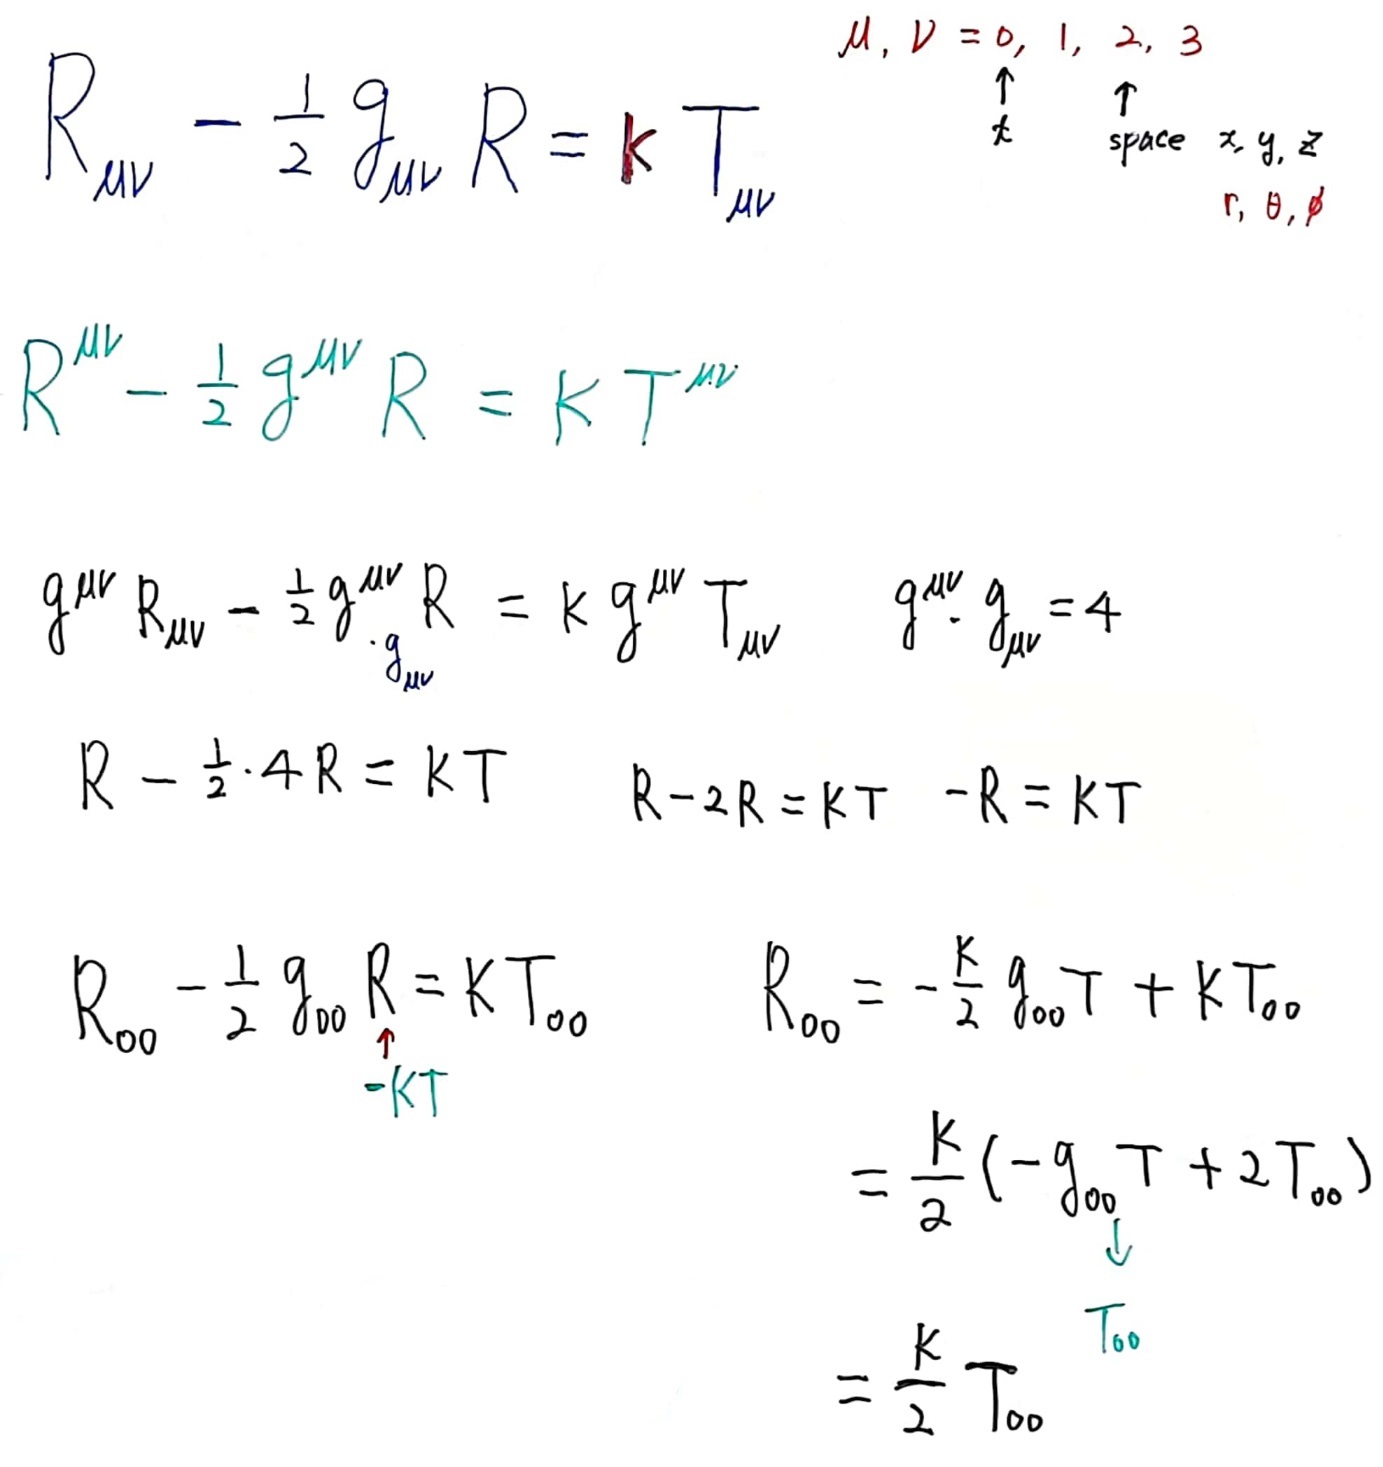 R_μν - 1/2 g_μν R = k T_μν
μ, ν = 0, 1, 2, 3
↑ ↑
t space x, y, z
r, θ, φ
R^μν - 1/2 g^μν R = K T^μν
g^μν R_μν - 1/2 g^μν · g_μν R = K g^μν T_μν g^μν · g_μν = 4
R - 1/2 · 4R = KT R - 2R = KT -R = KT
R_00 - 1/2 g_00 R = K T_00 R_00 = - K/2 g_00 T + K T_00
↑
-KT
= K/2 (-g_00 T + 2T_00)
↓
T_00
= K/2 T_00